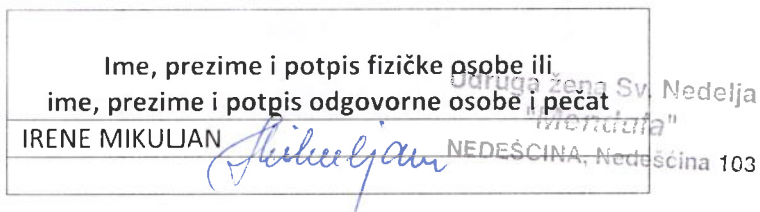 Ime, prezime i potpis fizičke osobe ili
ime, prezime i potpis odgovorne osobe i pečat
IRENE MIKULJAN
Mikuljan
Udruga žena Sv. Nedelja
"Mendula"
NEDEŠĆINA, Nedešćina 103